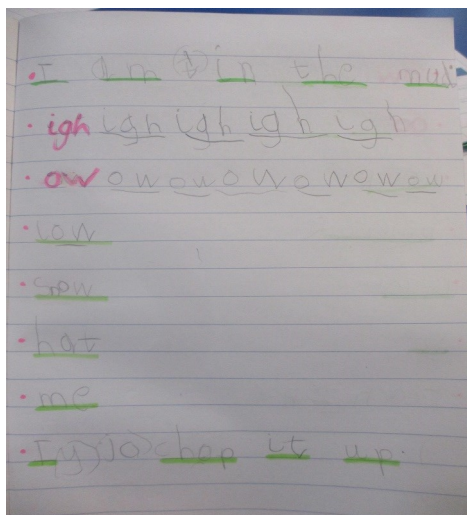 I am in the mud
igh igh igh igh igh
ow ow ow ow ow ow ow
low
hat
me
I chop it up.